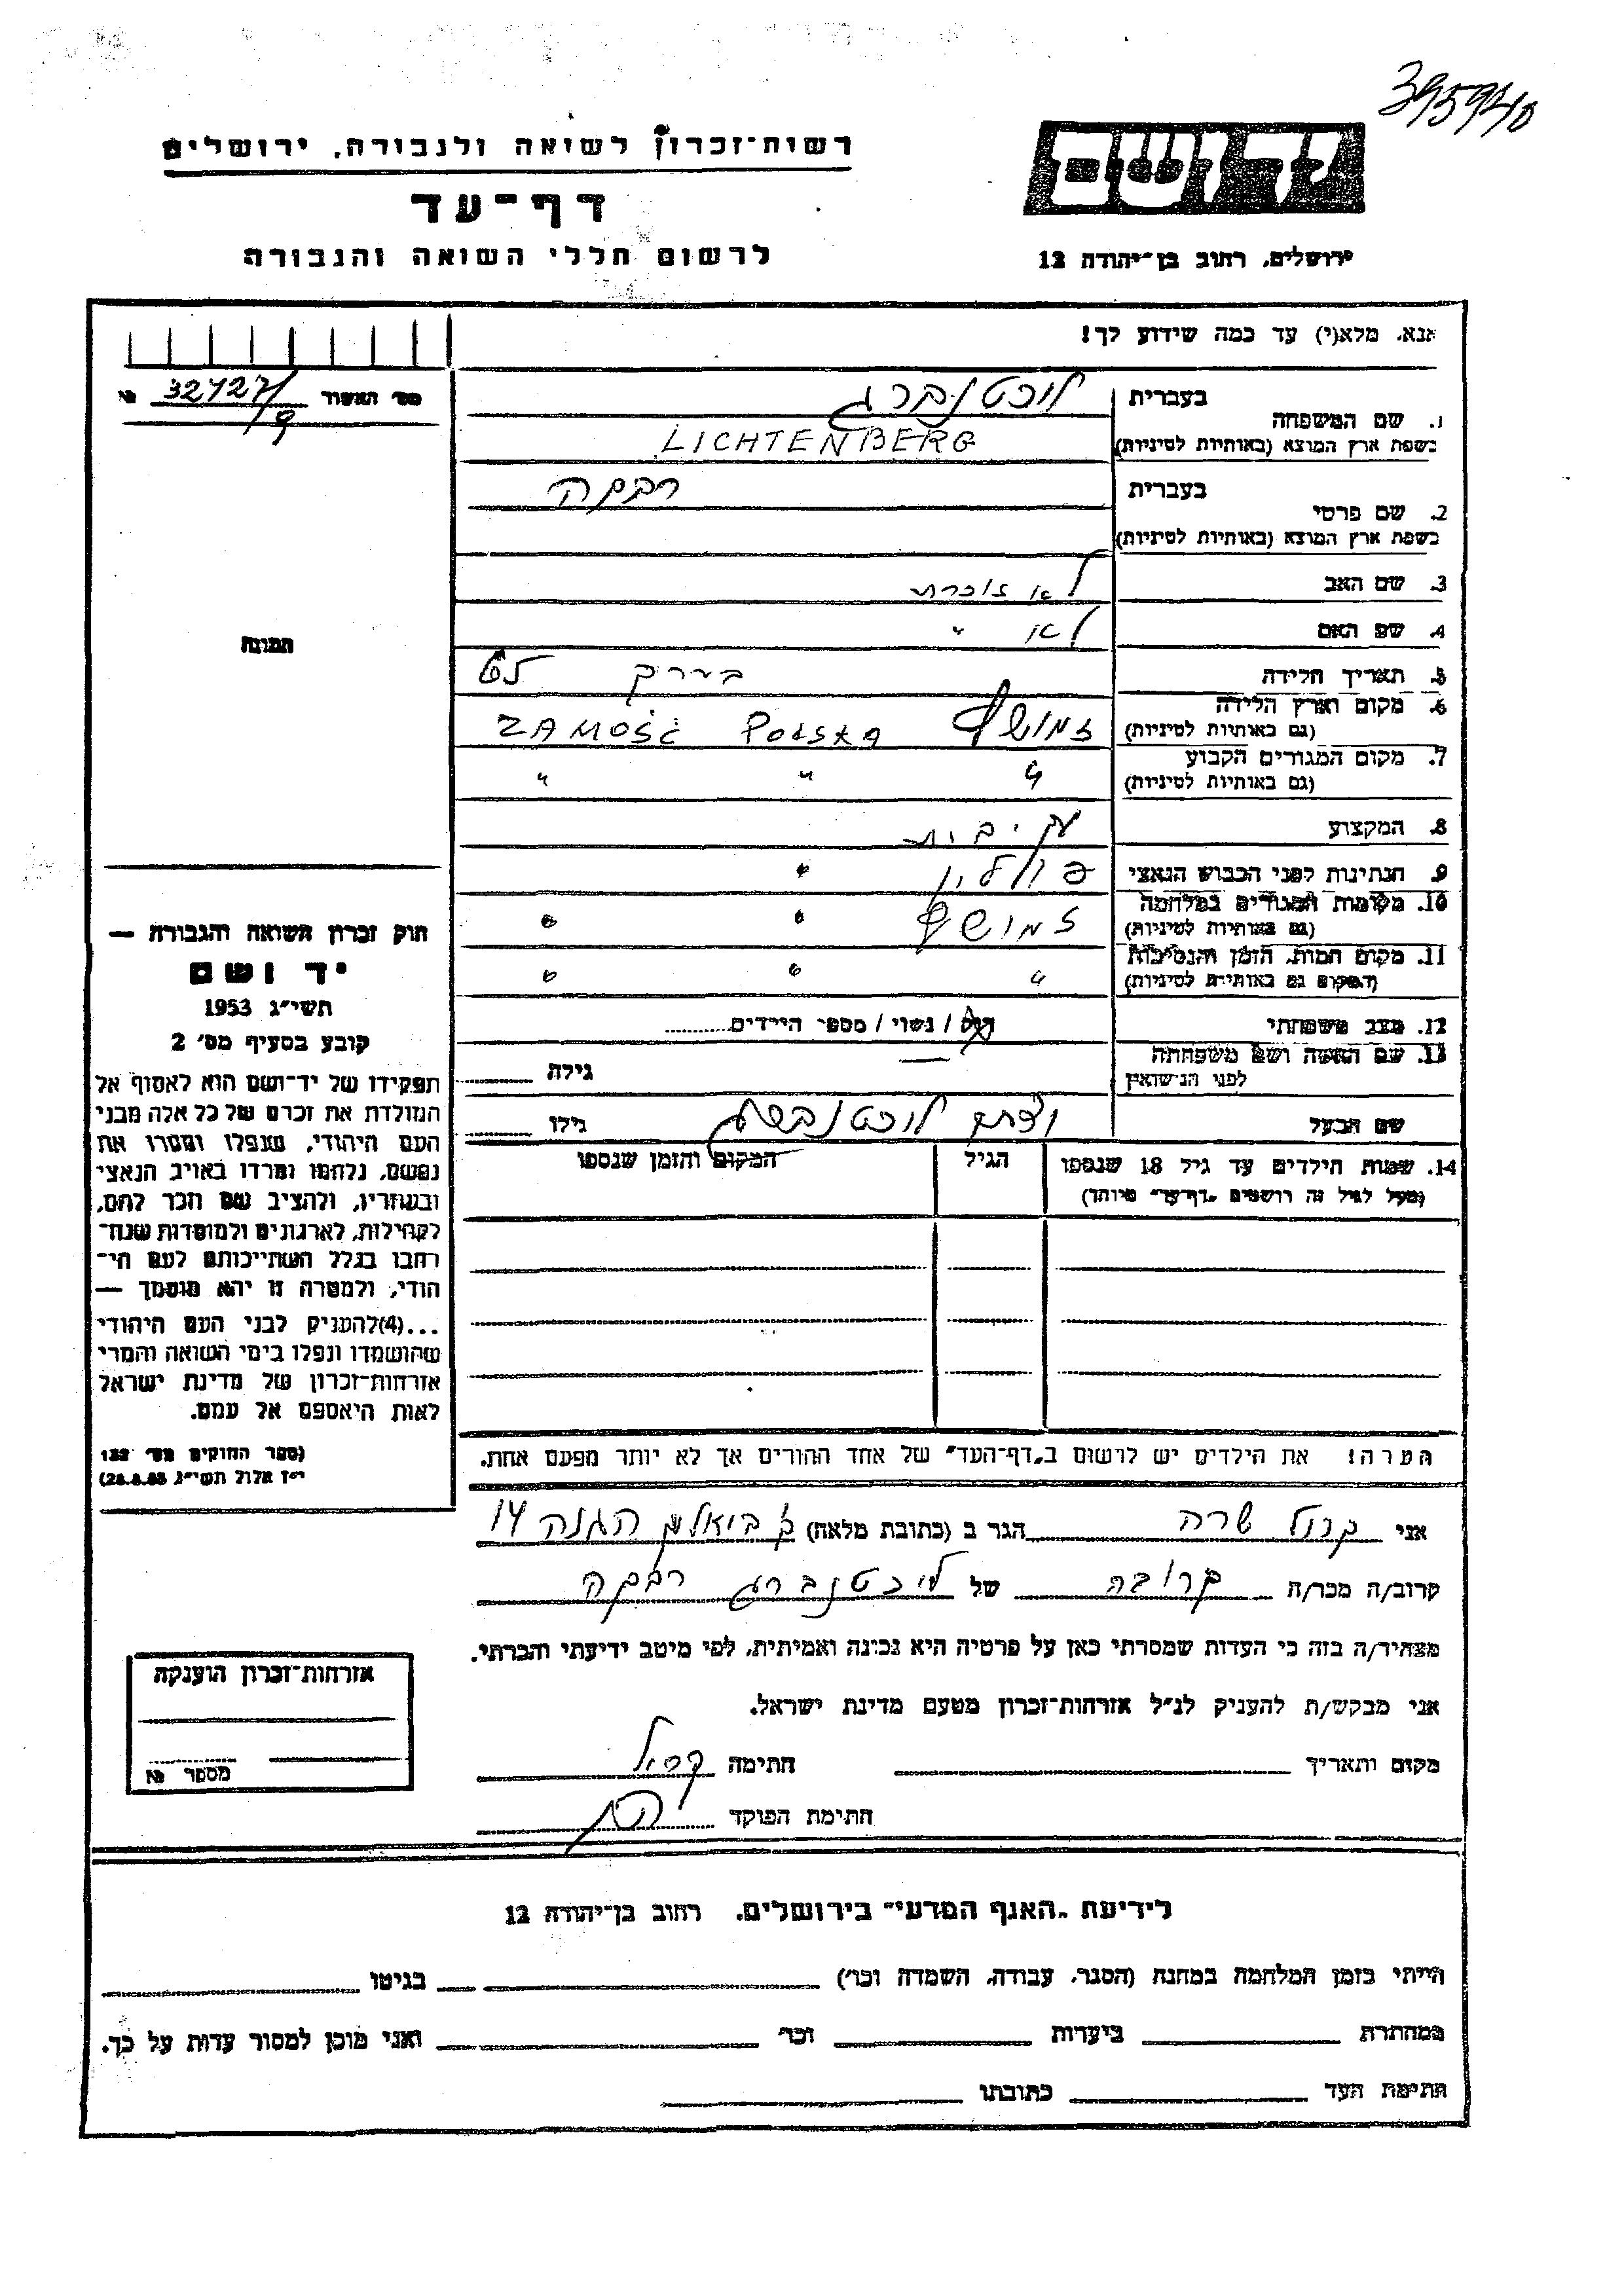 395940
רשות־זכרון לשואה ולגבורה, ירושלים
דף־עד
לרשום חללי השואה והגבורה
יד ושם
ירושלים, רחוב בן־יהודה 12
אנא, מלא(י) עד כמה שידוע לך!
מס׳ האשור № 32427/9
1. שם המשפחה
בעברית ליכטנברג
בשפת ארץ המוצא (באותיות לטיניות) LICHTENBERG
2. שם פרטי
בעברית רבקה
בשפת ארץ המוצא (באותיות לטיניות)
3. שם האב לא זוכרת
4. שם האם לא "
5. תאריך הלידה בערך 65
6. מקום וארץ הלידה זמושץ POLSKA ZAMOŚĆ
(גם באותיות לטיניות)
7. מקום המגורים הקבוע " " "
(גם באותיות לטיניות)
8. המקצוע עק׳ בית
9. הנתינות לפני הכבוש הנאצי פולין "
10. מקומות המגורים במלחמה זמושץ " "
(גם באותיות לטיניות)
11. מקום המות, הזמן והנסיבות " " "
(המקום גם באותיות לטיניות)
12. מצב משפחתי רווק / נשוי / מספר הילדים
13. שם האשה ושם משפחתה — גילה
לפני הנישואין
שם הבעל ליכטנברג גילו
14. שמות הילדים עד גיל 18 שנספו הגיל המקום והזמן שנספו
(מעל לגיל זה רושמים „דף־עד״ מיוחד)
הערה! את הילדים יש לרשום ב„דף־העד״ של אחד ההורים אך לא יותר מפעם אחת.
תמונה
חוק זכרון השואה והגבורה —
יד ושם
תשי״ג 1953
קובע בסעיף מס׳ 2
תפקידו של יד־ושם הוא לאסוף אל
המולדת את זכרם של כל אלה מבני
העם היהודי, שנפלו ומסרו את
נפשם, נלחמו ומרדו באויב הנאצי
ובעוזריו, ולהציב שם וזכר להם,
לקהילות, לארגונים ולמוסדות שנח־
רבו בגלל השתייכותם לעם הי־
הודי, ולמטרה זו יהא מוסמך —
...(4) להעניק לבני העם היהודי
שהושמדו ונפלו בימי השואה והמרי
אזרחות־זכרון של מדינת ישראל
לאות היאספם אל עמם.
(ספר החוקים מס׳ 132
י״ז אלול תשי״ג 28.8.53)
אני שרה הגר ב (כתובת מלאה) הגנה 14
קרוב/ה מכר/ה קרובה של ליכטנברג רבקה
מצהיר/ה בזה כי העדות שמסרתי כאן על פרטיה היא נכונה ואמיתית, לפי מיטב ידיעתי והכרתי.
אני מבקש/ת להעניק לנ״ל אזרחות־זכרון מטעם מדינת ישראל.
מקום ותאריך חתימה
חתימת הפוקד
אזרחות־זכרון הוענקה
מספר №
לידיעת „האגף המדעי״ בירושלים, רחוב בן־יהודה 12
הייתי בזמן המלחמה במחנה (הסגר, עבודה, השמדה וכר׳) בגיטו
במחתרת ביערות וכר׳ ואני מוכן למסור עדות על כך.
חתימת העד כתובתו